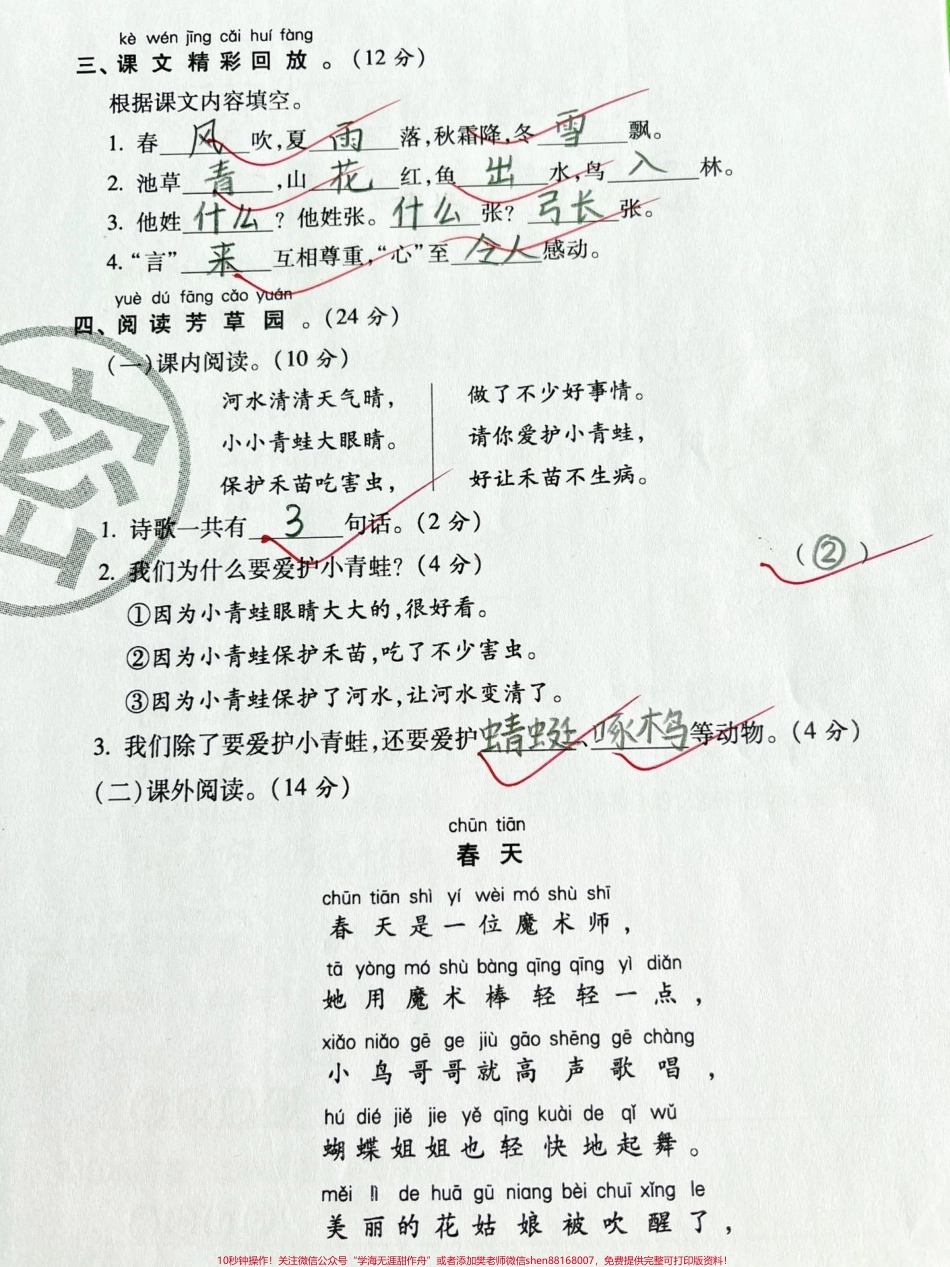 kè wén jīng cǎi huí fàng
三、课文精彩回放。(12分)
根据课文内容填空。
1. 春风吹,夏雨落,秋霜降,冬雪飘。
2. 池草青,山花红,鱼出水,鸟入林。
3. 他姓什么?他姓张。什么张?弓长张。
4. “言”来互相尊重,“心”至令人感动。
yuè dú fāng cǎo yuán
四、阅读芳草园。(24分)
(一)课内阅读。(10分)
河水清清天气晴,
小小青蛙大眼睛。
保护禾苗吃害虫,
做了不少好事情。
请你爱护小青蛙,
好让禾苗不生病。
1. 诗歌一共有3句话。(2分)
2. 我们为什么要爱护小青蛙?(4分) (②)
①因为小青蛙眼睛大大的,很好看。
②因为小青蛙保护禾苗,吃了不少害虫。
③因为小青蛙保护了河水,让河水变清了。
3. 我们除了要爱护小青蛙,还要爱护蜻蜓、啄木鸟等动物。(4分)
(二)课外阅读。(14分)
chūn tiān
春天
chūn tiān shì yí wèi mó shù shī
春天是一位魔术师,
tā yòng mó shù bàng qīng qīng yì diǎn
她用魔术棒轻轻一点,
xiǎo niǎo gē ge jiù gāo shēng gē chàng
小鸟哥哥就高声歌唱,
hú dié jiě jie yě qīng kuài de qǐ wǔ
蝴蝶姐姐也轻快地起舞。
měi lì de huā gū niang bèi chuī xǐng le
美丽的花姑娘被吹醒了,
密
10秒钟操作!关注微信公众号“学海无涯甜作舟”或者添加樊老师微信shen88168007,免费提供完整可打印版资料!